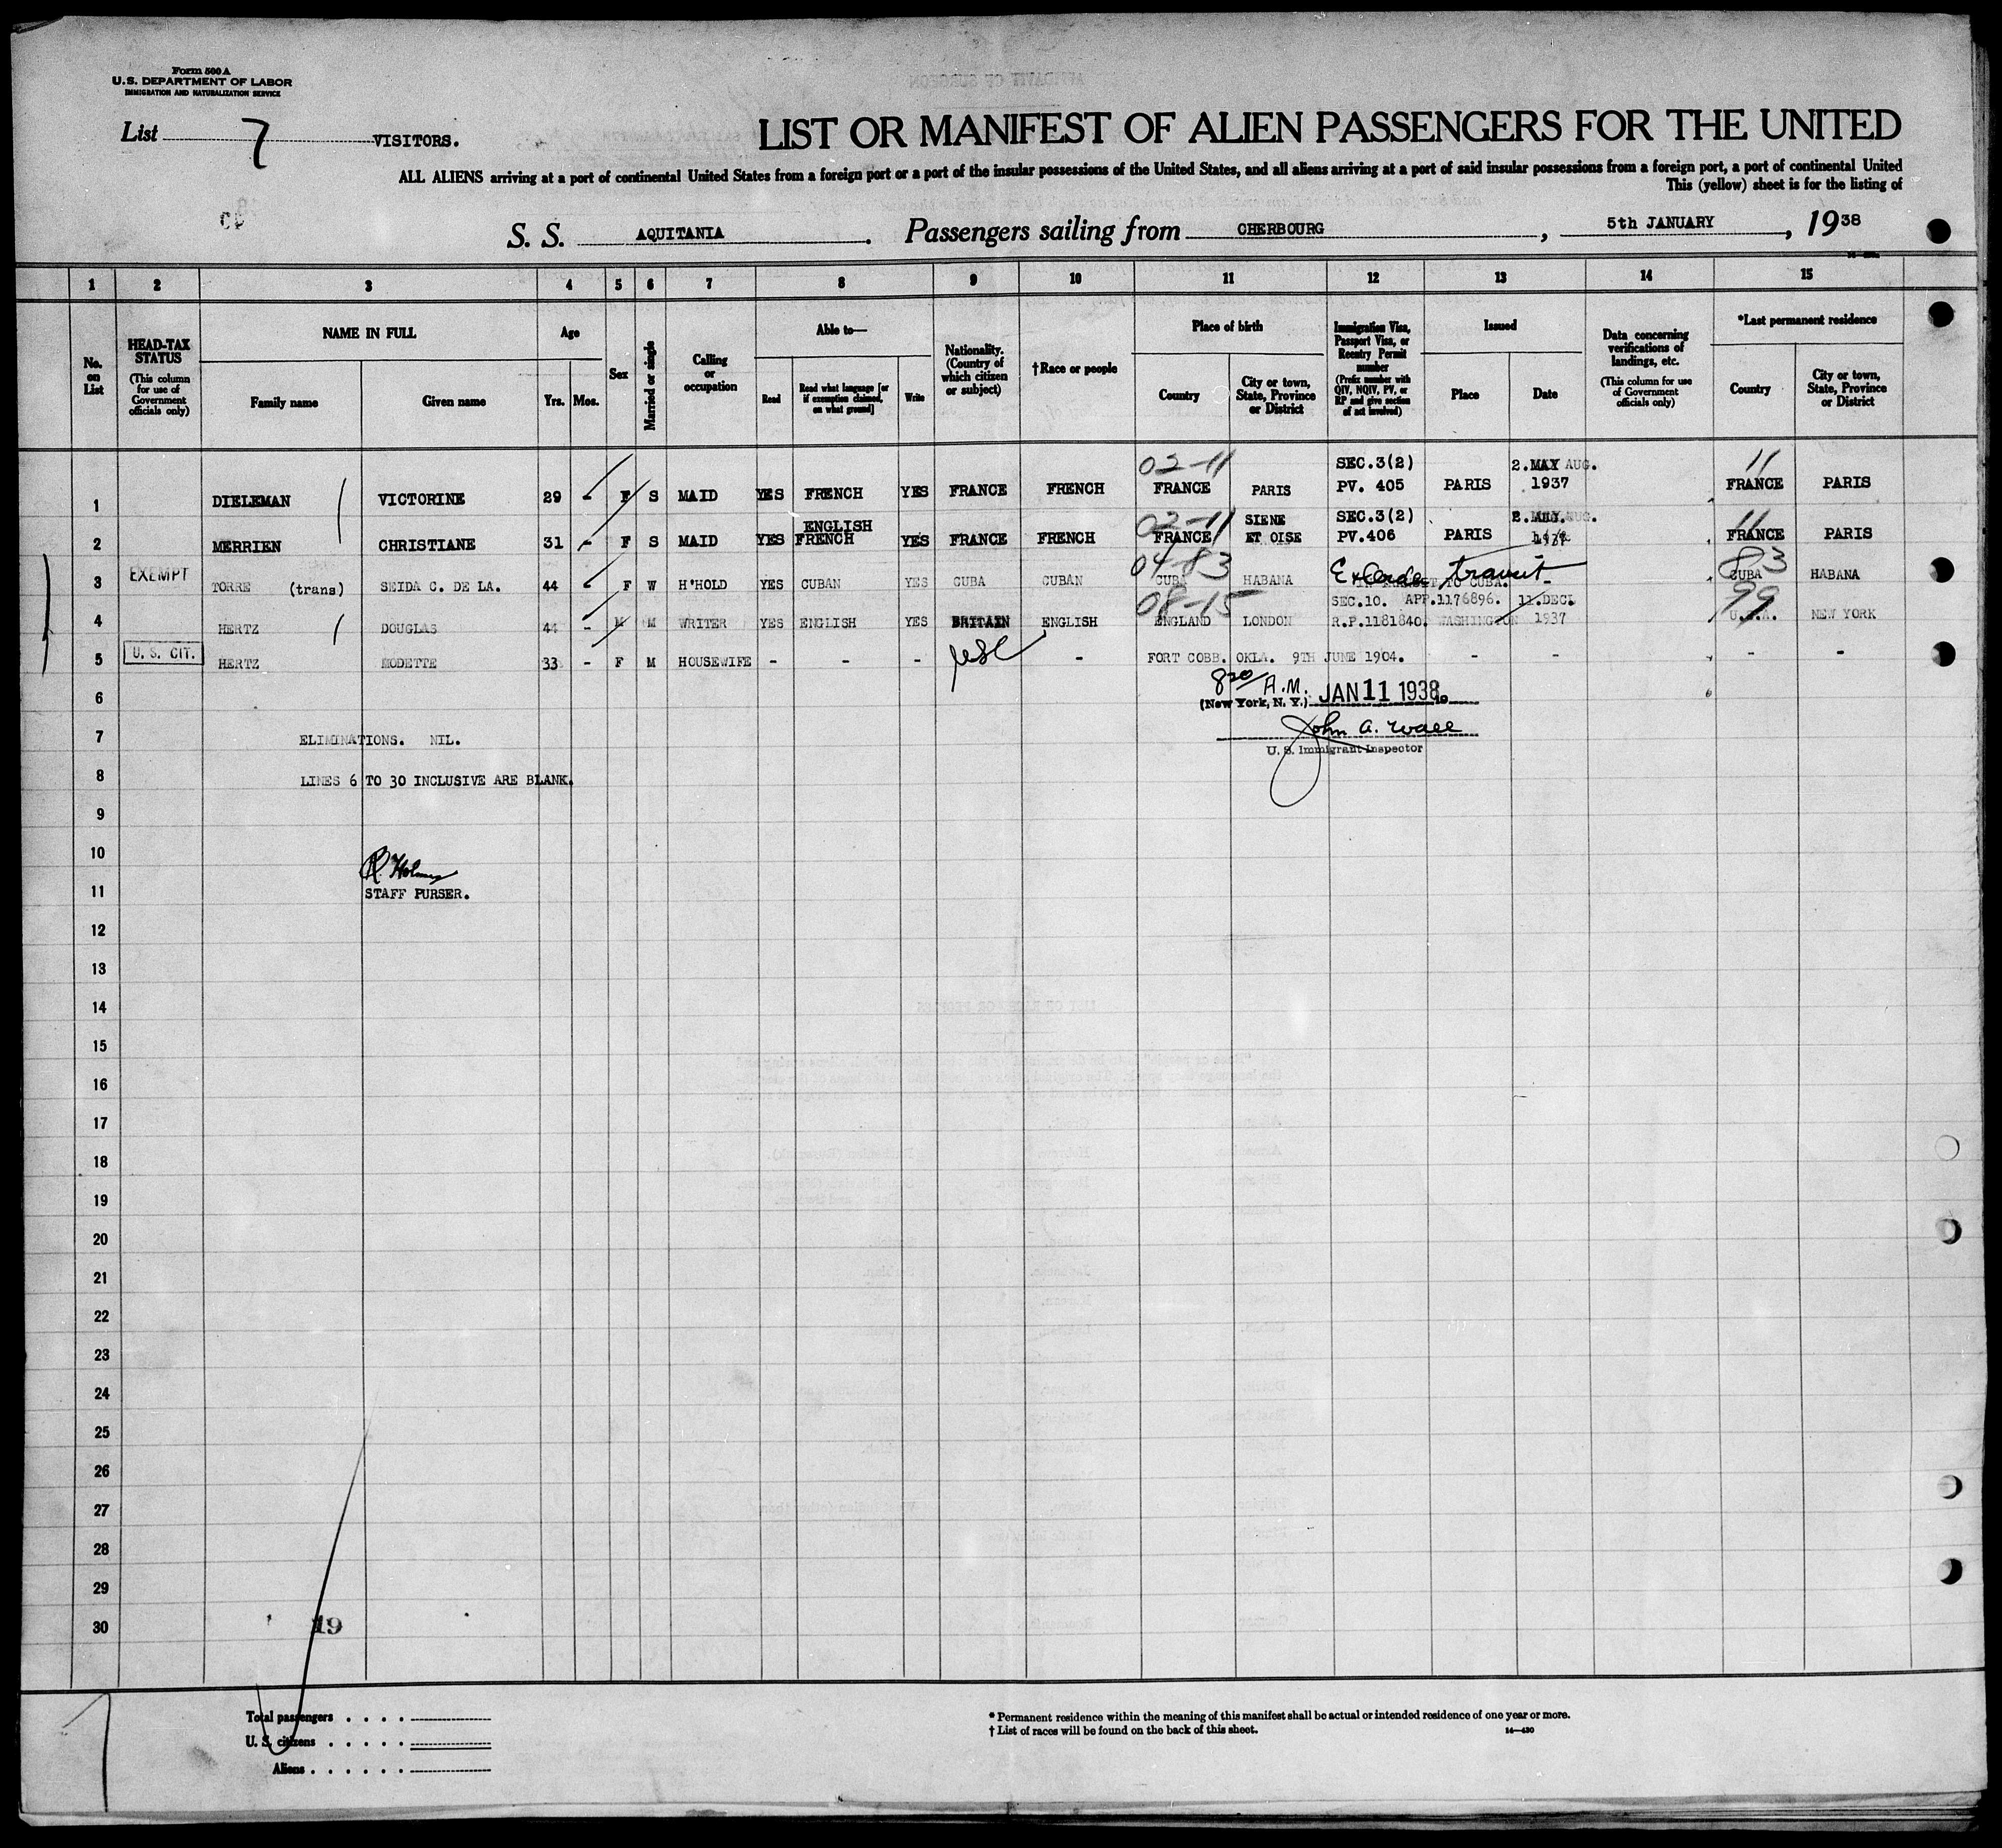 Form 500 A
U.S. DEPARTMENT OF LABOR
IMMIGRATION AND NATURALIZATION SERVICE
List 7 VISITORS.
LIST OR MANIFEST OF ALIEN PASSENGERS FOR THE UNITED
ALL ALIENS arriving at a port of continental United States from a foreign port or a port of the insular possessions of the United States, and all aliens arriving at a port of said insular possessions from a foreign port, a port of continental United
This (yellow) sheet is for the listing of
S. S. AQUITANIA. Passengers sailing from CHERBOURG, 5th JANUARY, 1938
1 2 3 4 5 6 7 8 9 10 11 12 13 14 15
No. on List
HEAD-TAX STATUS
(This column for use of Government officials only)
NAME IN FULL
Family name
Given name
Age
Yrs. Mos.
Sex
Married or single
Calling or occupation
Able to—
Read
Read what language [or if exemption claimed, on what ground]
Write
Nationality. (Country of which citizen or subject)
†Race or people
Place of birth
Country
City or town, State, Province or District
Immigration Visa, Passport Visa, or Reentry Permit number
(Prefix number with QIV, NQIV, PV, or RP and give section of act involved)
Issued
Place
Date
Data concerning verifications of landings, etc.
(This column for use of Government officials only)
*Last permanent residence
Country
City or town, State, Province or District
02-11 SEC.3(2) 2.MAY AUG. 11
1 DIELEMAN VICTORINE 29 - F S MAID YES FRENCH YES FRANCE FRENCH FRANCE PARIS PV. 405 PARIS 1937 FRANCE PARIS
ENGLISH 02-11 SIENE SEC.3(2) 11
2 MERRIEN CHRISTIANE 31 - F S MAID YES FRENCH YES FRANCE FRENCH FRANCE ET OISE PV.406 PARIS 1937 FRANCE PARIS
EXEMPT 04-83 83
3 TORRE (trans) SEIDA C. DE LA. 44 - F W H'HOLD YES CUBAN YES CUBA CUBAN CUBA HABANA IN TRANSIT TO CUBA. - CUBA HABANA
transit
08-15 SEC.10. APP.1176896. 11.DEC. 99
4 HERTZ DOUGLAS 44 - M M WRITER YES ENGLISH YES BRITAIN ENGLISH ENGLAND LONDON R.P.1181840. WASHINGTON 1937 U.S.A. NEW YORK
U. S. CIT.
5 HERTZ MODETTE 33 - F M HOUSEWIFE - - - USC - FORT COBB. OKLA. 9TH JUNE 1904. - - - -
6
8 20/ A.M.
(New York, N. Y.) JAN 11 1938 19
John A. Wall
U. S. Immigrant Inspector
7 ELIMINATIONS. NIL.
8 LINES 6 TO 30 INCLUSIVE ARE BLANK.
9
10
R. Holmes
11 STAFF PURSER.
12
13
14
15
16
17
18
19
20
21
22
23
24
25
26
27
28
29
30
19
Total passengers . . . .
U. S. citizens . . . . .
Aliens . . . . . .
* Permanent residence within the meaning of this manifest shall be actual or intended residence of one year or more.
† List of races will be found on the back of this sheet. 14—430